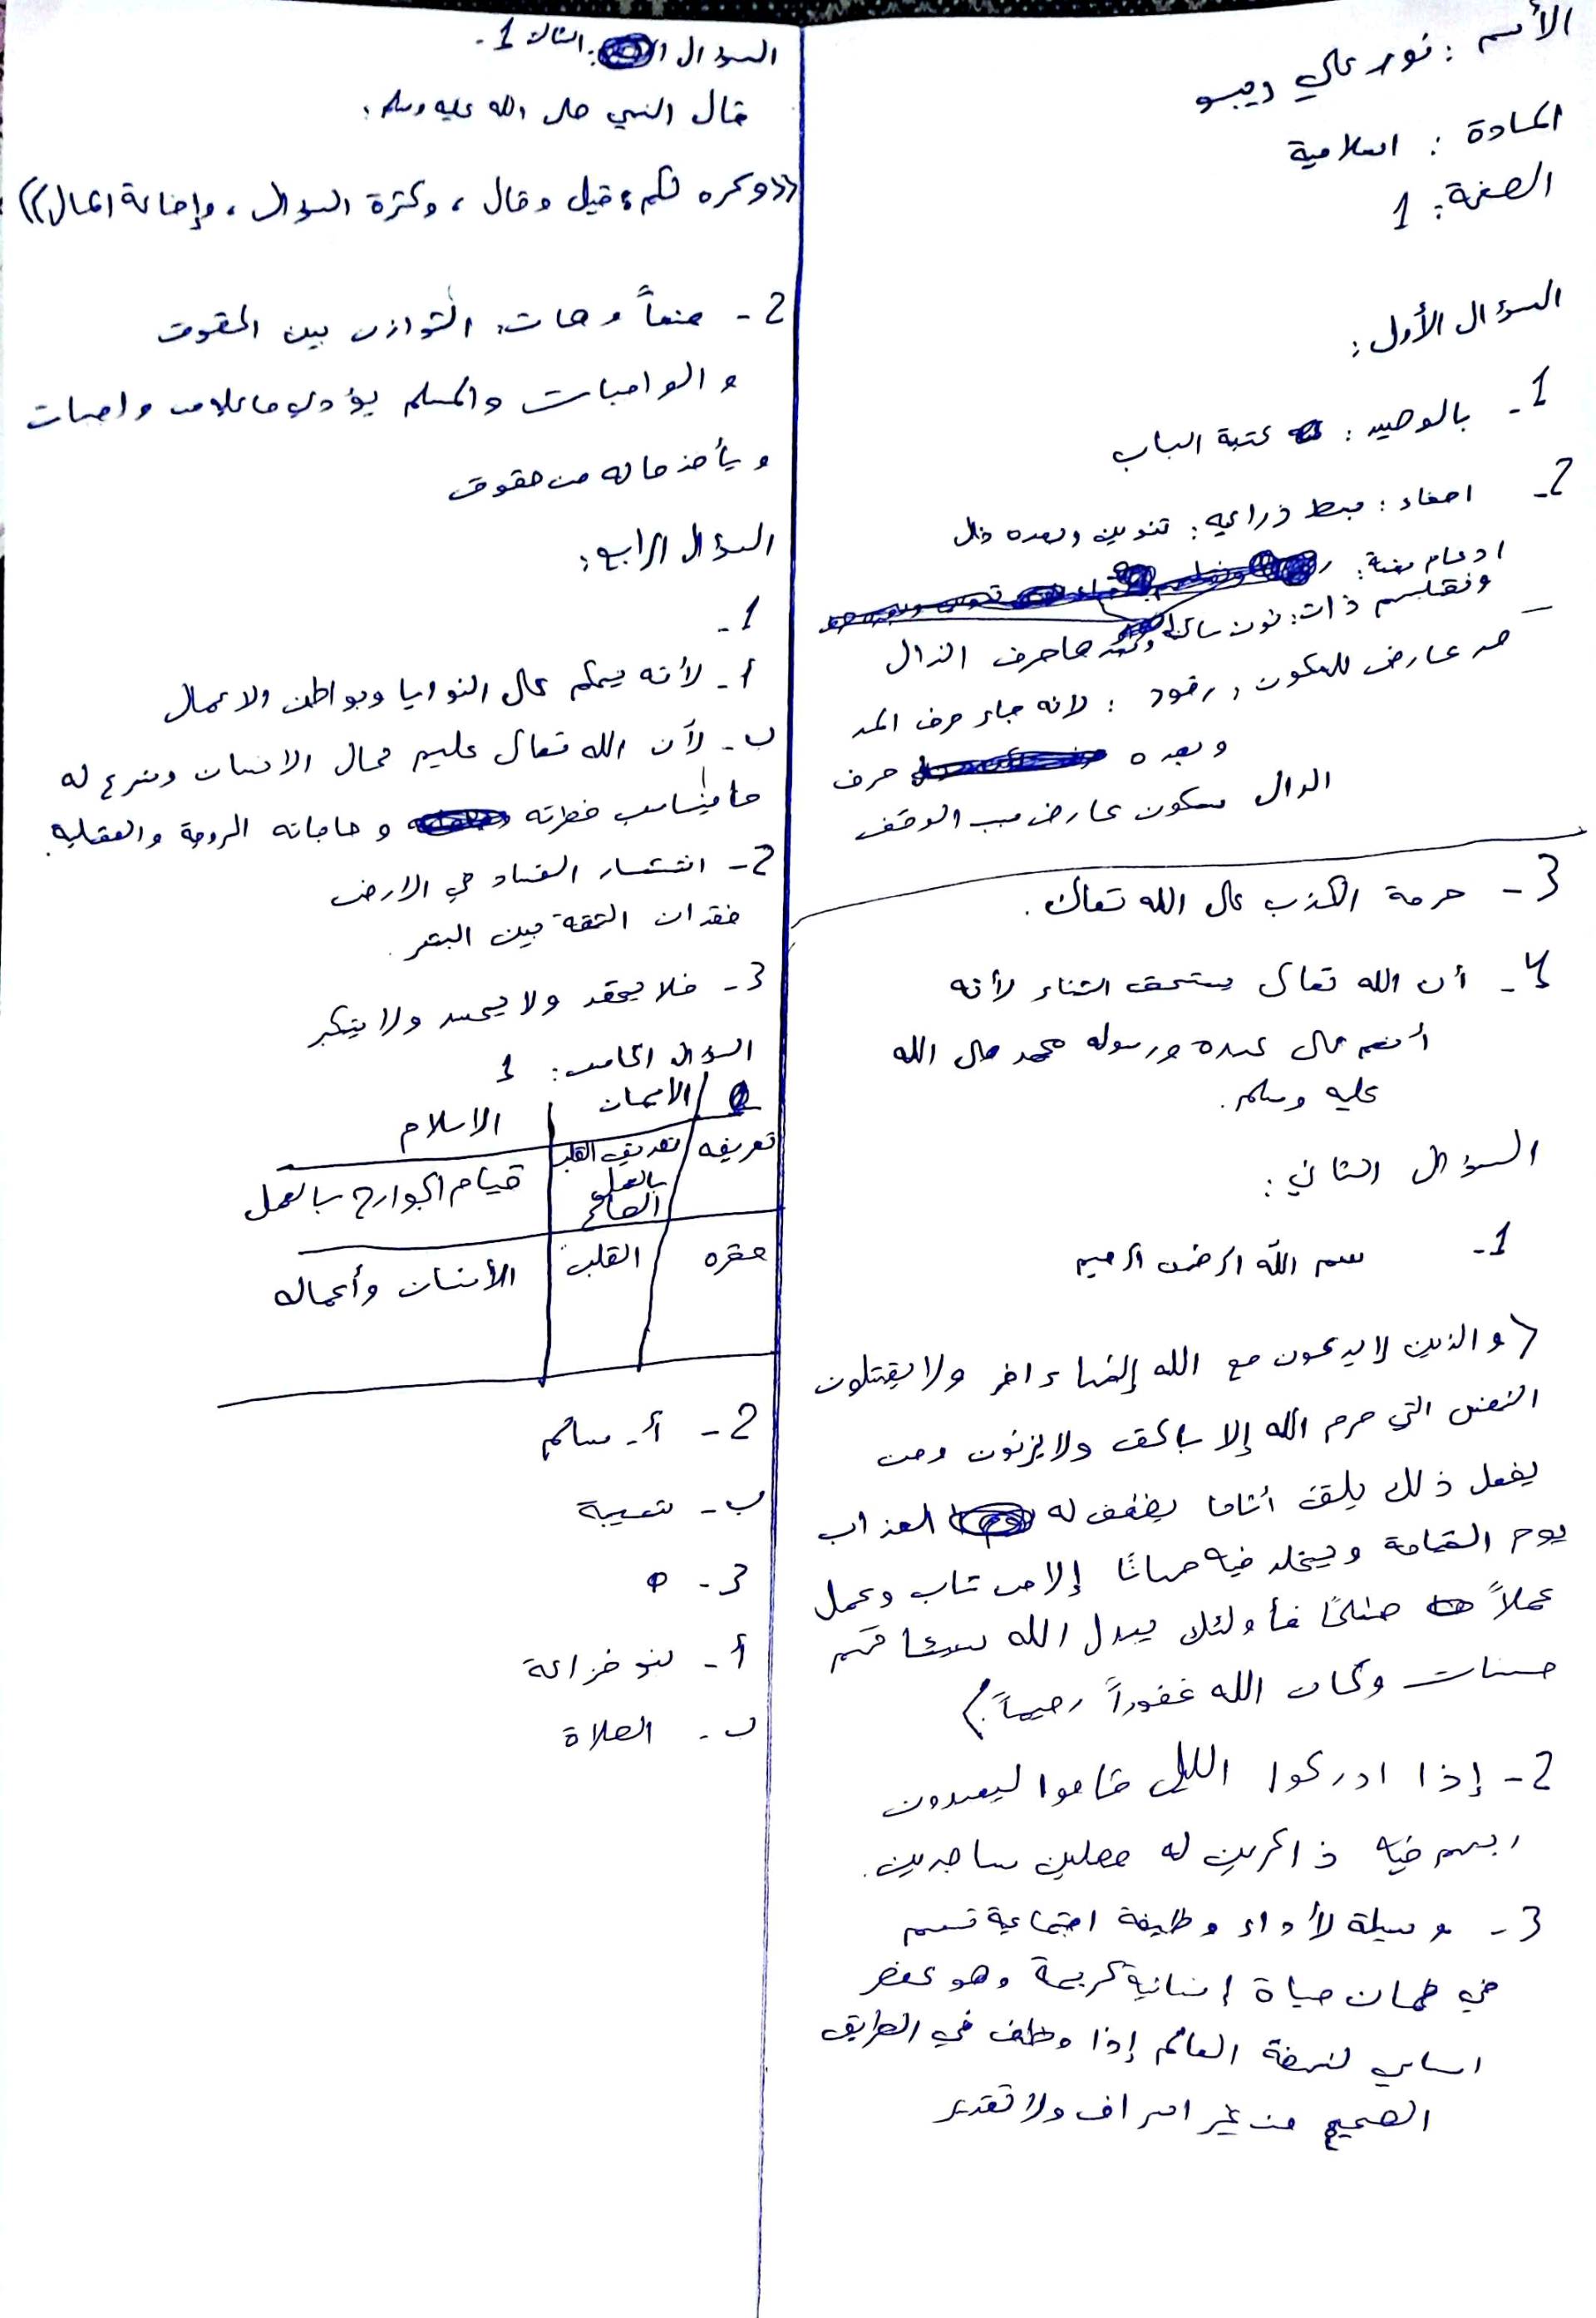 الأسم : نور علي ديبو
المادة : اسلامية
الصفحة : 1
السؤال الأول :
1- بالوصيد : عتبة الباب
2- اخفاء : بسط ذراعيه : تنوين وبعده ذال
ادغام بغنة :
ونقلبهم ذات : نون ساكنة وبعدها حرف الذال
مد عارض للسكون , رقود : لانه جاء حرف المد
وبعده حرف
الدال سكون عارض سبب الوقف
3- حرمة الكذب على الله تعالى .
4- أن الله تعالى يستحق الثناء لأنه
أنعم على عبده ورسوله محمد صلى الله
عليه وسلم .
السؤال الثاني :
1- بسم الله الرحمن الرحيم
﴿ والذين لا يدعون مع الله إلها ءاخر ولا يقتلون
النفس التي حرم الله إلا بالحق ولا يزنون ومن
يفعل ذلك يلق أثاما يضعف له العذاب
يوم القيامة ويخلد فيه مهانًا إلا من تاب وعمل
عملاً صلحًا فأولئك يبدل الله سيئاتهم
حسنات وكان الله غفوراً رحيماً . ﴾
2- إذا ادركوا الليل قاموا ليعبدون
ربهم فيه ذاكرين له مصلين ساجدين .
3- وسيلة لأداء وظيفة اجتماعية تسهم
في ظمان حياة إنسانية كريمة وهو عنصر
اساسي لنهضة العالم إذا وظف في الطريق
الصحيح من غير اسراف ولا تقدير
السؤال الثالث 1-
قال النبي صلى الله عليه وسلم :
((وكره لكم : قيل وقال ، وكثرة السؤال ، وإضاعة المال))
2- منعاً وهات : التوازن بين الحقوق
والواجبات والمسلم يؤدي ما عليه من واجبات
ويأخذ ما له من حقوق
السؤال الرابع :
1-
أ- لأنه يحكم على النوايا وبواطن الاعمال
ب- لأن الله تعالى عليم بحال الانسان وشرع له
ما يناسب فطرته وحاجاته الروحية والعقليه .
2- انتشار الفساد في الارض
فقدان الثقة بين البشر .
3- فلا يحقد ولا يحسد ولا يتكبر
السؤال الخامس : 1
الايمان الاسلام
تعريفه تصديق القلب بالعمل الصالح قيام الجوارح بالعمل
مقره القلب الأنسان وأعماله
2- أ- سالم
ب- شعيبة
3-
أ- بنو خزاعة
ب- الصلاة